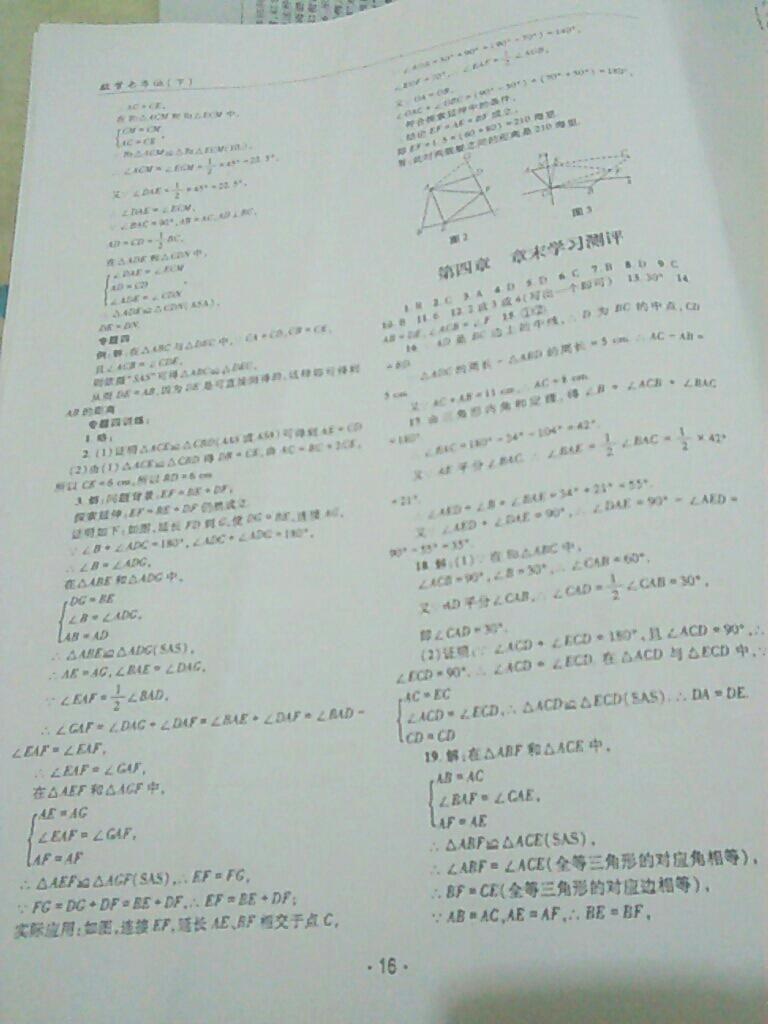 数学七年级(下)
AC=CE,
在Rt△ACM和Rt△ECM中,
CM=CM
AC=CE
∴Rt△ACM≌Rt△ECM(HL),
∴∠ACM=∠ECM=1/2×45°=22.5°,
又∵∠DAE=1/2×45°=22.5°,
∴∠DAE=∠ECM,
∵∠BAC=90°,AB=AC,AD⊥BC,
AD=CD=1/2BC,
在△ADE和△CDN中,
∠DAE=∠ECM
AD=CD
∠ADE=∠CDN
∴△ADE≌△CDN(ASA),
DE=DN.
专题四
例:解:在△ABC与△DEC中,∵CA=CD,CB=CE,
且∠ACB=∠DCE,
则依据“SAS”可得△ABC≌△DEC,
从而DE=AB,因为DE是可直接测得的,这样即可得到
AB的距离
专题四训练:
1.略;
2.(1)证明△ACE≌△CBD(AAS或ASA)可得到AE=CD
(2)由(1)△ACE≌△CBD得DB=CE,由AC=BC=2CE,
所以CE=6 cm,所以BD=6 cm
3.解:问题背景:EF=BE+DF;
探索延伸:EF=BE+DF仍然成立.
证明如下:如图,延长FD到G,使DG=BE,连接AG,
∵∠B+∠ADC=180°,∠ADC+∠ADG=180°,
∴∠B=∠ADG,
在△ABE和△ADG中,
DG=BE
∠B=∠ADG,
AB=AD
∴△ABE≌△ADG(SAS),
∴AE=AG,∠BAE=∠DAG,
∵∠EAF=1/2∠BAD,
∴∠GAF=∠DAG+∠DAF=∠BAE+∠DAF=∠BAD-
∠EAF=∠EAF,
∴∠EAF=∠GAF,
在△AEF和△AGF中,
AE=AG
∠EAF=∠GAF,
AF=AF
∴△AEF≌△AGF(SAS),∴EF=FG,
∵FG=DG+DF=BE+DF,∴EF=BE+DF;
实际应用:如图,连接EF,延长AE、BF相交于点C,
∵∠AOB=30°+90°+(90°-70°)=140°,
∠EOF=70°,∴∠EAF=1/2∠AOB,
又∵OA=OB,
∠OAC+∠OBC=(90°-30°)+(70°+50°)=180°,
符合探索延伸中的条件,
结论EF=AE+BF成立,
即EF=1.5×(60+80)=210海里.
答:此时两舰艇之间的距离是210海里.
图2
图3
第四章 章末学习测评
1.B 2.C 3.A 4.D 5.D 6.C 7.B 8.D 9.C
10.B 11.6 12.2或3或4(写出一个即可) 13.30° 14.
AB=DE,∠ACB=∠F 15.①②
16. AD是BC边上的中线,∴D为BC的中点,CD
=BD.
△ADC的周长-△ABD的周长=5 cm.∴AC-AB=
5 cm.
又∵AC+AB=11 cm,∴AC=8 cm.
17.由三角形内角和定理,得∠B+∠ACB+∠BAC
=180°.
∠BAC=180°-34°-104°=42°.
又∵AE平分∠BAC.∴∠BAE=1/2∠BAC=1/2×42°
=21°.
∴∠AED=∠B+∠BAE=34°+21°=55°.
又∵∠AED+∠DAE=90°,∴∠DAE=90°-∠AED=
90°-55°=35°.
18.解:(1)∵在Rt△ABC中,
∠ACB=90°,∠B=30°,∴∠CAB=60°.
又∵AD平分∠CAB,∴∠CAD=1/2∠CAB=30°,
即∠CAD=30°.
(2)证明:∵∠ACD+∠ECD=180°,且∠ACD=90°,∴
∠ECD=90°.∴∠ACD=∠ECD.在△ACD与△ECD中,∵
AC=EC
∠ACD=∠ECD,∴△ACD≌△ECD(SAS).∴DA=DE.
CD=CD
19.解:在△ABF和△ACE中,
AB=AC
∠BAF=∠CAE,
AF=AE
∴△ABF≌△ACE(SAS),
∴∠ABF=∠ACE(全等三角形的对应角相等),
∴BF=CE(全等三角形的对应边相等),
∵AB=AC,AE=AF,∴BE=BF,
·16·